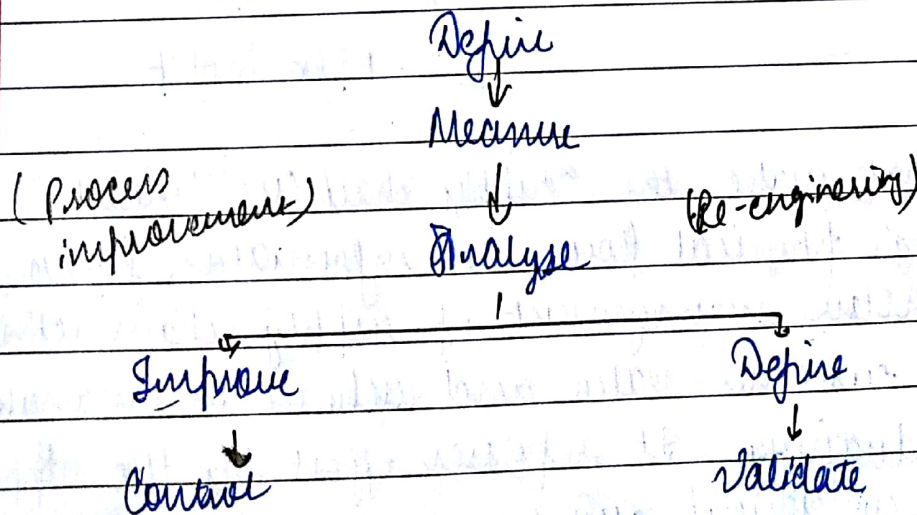 Define
Measure
(Process
improvement)
(Re-enginering)
Analyse
Improve
Define
Control
Validate